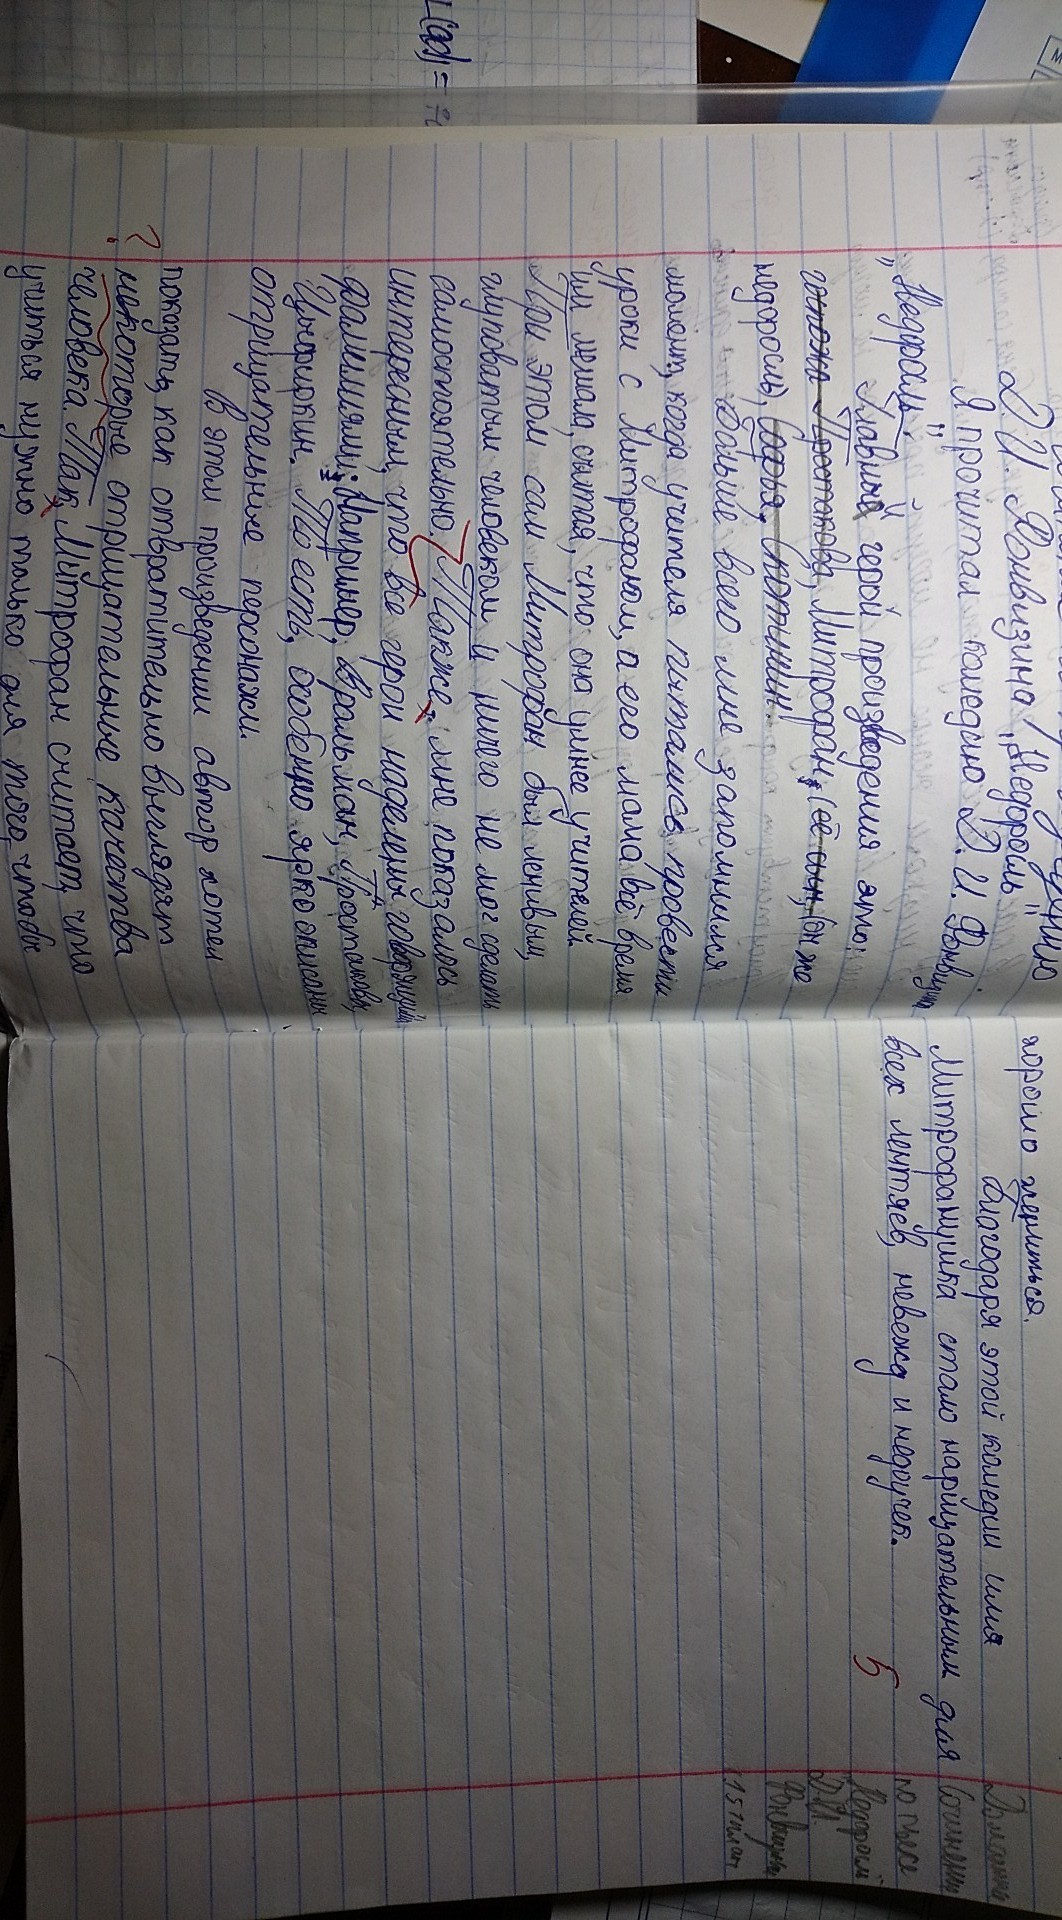 Д.И. Фонвизина „Недоросль"
Я прочитал комедию Д. И. Фонвизина
„Недоросль".
Главный герой произведения это:
Простакова, Митрофан (её сын, он же
недоросль), Софья, Стотинин.
Больше всего мне запомнился
момент, когда учителя пытались провести
уроки с Митрофаном, а его мама всё время
им мешала, считая, что она умнее учителей.
При этом сам Митрофан был ленивым,
глуповатым человеком и ничего не мог сделать
самостоятельно. Также, мне показалось
интересным, что все герои наделены говорящими
фамилиями: Например, Вральман, Простакова,
Цыфиркин. То есть, особенно ярко описаны
отрицательные персонажи.
В этом произведении автор хотел
показать, как отвратительно выглядят
некоторые отрицательные качества
человека. Так, Митрофан считает, что
учиться нужно только для того, чтобы
хорошо жениться.
Благодаря этой комедии имя
Митрофанушка стало нарицательным для
всех лентяев, невежд и недоучек.
5
Сочинение
по пьесе
Недоросль
Д.И.
Фонвизина
?